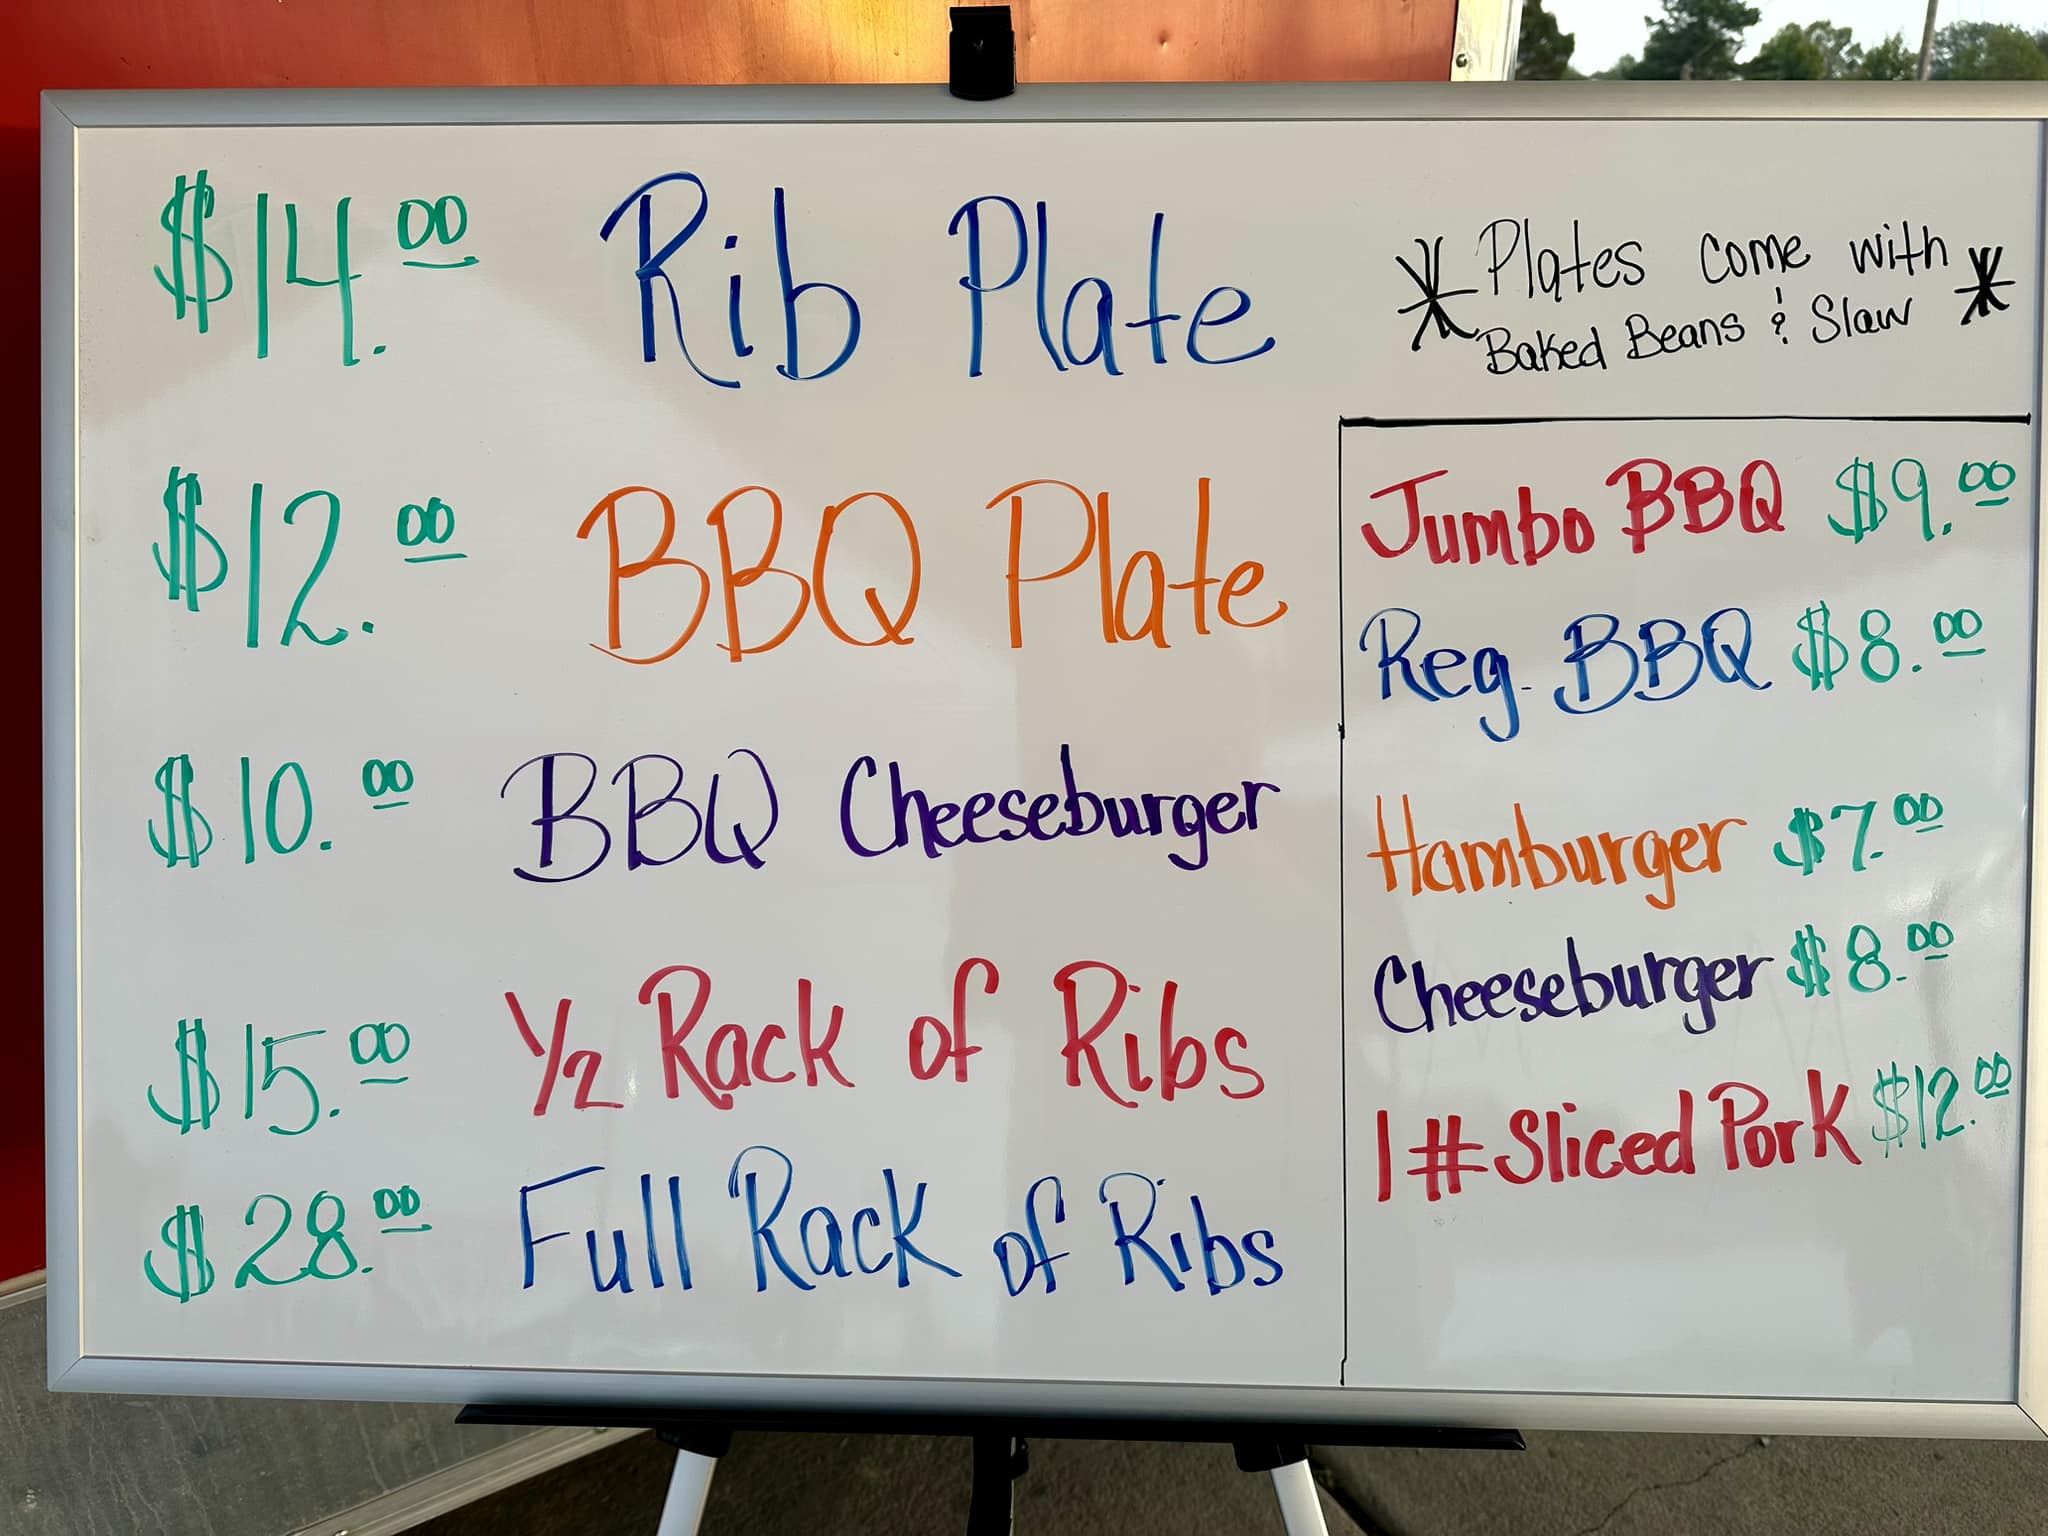 $14.00 Rib Plate
$12.00 BBQ Plate
$10.00 BBQ Cheeseburger
$15.00 1/2 Rack of Ribs
$28.00 Full Rack of Ribs
* Plates come with *
Baked Beans & Slaw
Jumbo BBQ $9.00
Reg. BBQ $8.00
Hamburger $7.00
Cheeseburger $8.00
1 # Sliced Pork $12.00